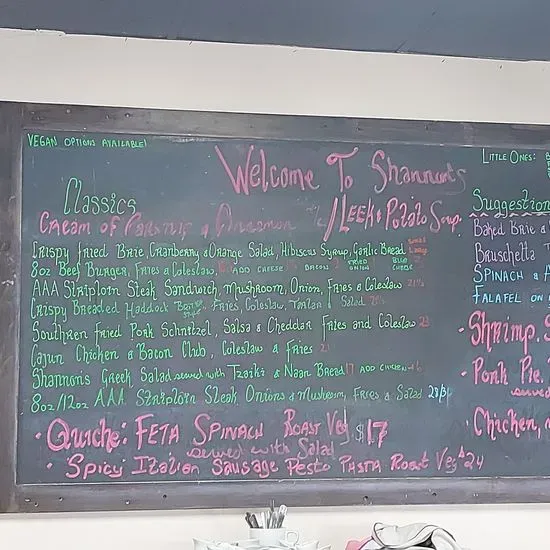 VEGAN OPTIONS AVAILABLE!
WELCOME TO Shannon's
LITTLE ONES:
Classics
CREAM OF PARSNIP & / LEEK & POTATO SOUP
CRISPY FRIED BRIE, CRANBERRY & ORANGE SALAD, HIBISCUS SYRUP, GARLIC BREAD
8oz BEEF BURGER, FRIES & COLESLAW, ADD CHEESE BACON FRIED ONION BLUE CHEESE
AAA STRIPLOIN STEAK SANDWICH, MUSHROOM, ONION, FRIES & COLESLAW
CRISPY BREADED HADDOCK FRIES, COLESLAW, TARTAR & SALAD
SOUTHREN FRIED PORK SCHNITZEL, SALSA & CHEDDAR FRIES AND COLESLAW 23
CAJUN CHICKEN & BACON CLUB, COLESLAW & FRIES 21
SHANNON'S GREEK SALAD SERVED WITH TZAIKI & NAAN BREAD 17 ADD CHICKEN
8oz/12oz AAA STRIPLOIN STEAK ONIONS & MUSHROOM, FRIES & SALAD
• QUICHE: FETA SPINACH ROAST VEG $17
SERVED WITH SALAD
• SPICY ITALIAN SAUSAGE PESTO PASTA ROAST VEG $24
Suggestion
BAKED BRIE &
BRUSCHETTA
SPINACH &
FALAFEL ON
• SHRIMP.
• PORK PIE.
SERVED
CHICKEN,